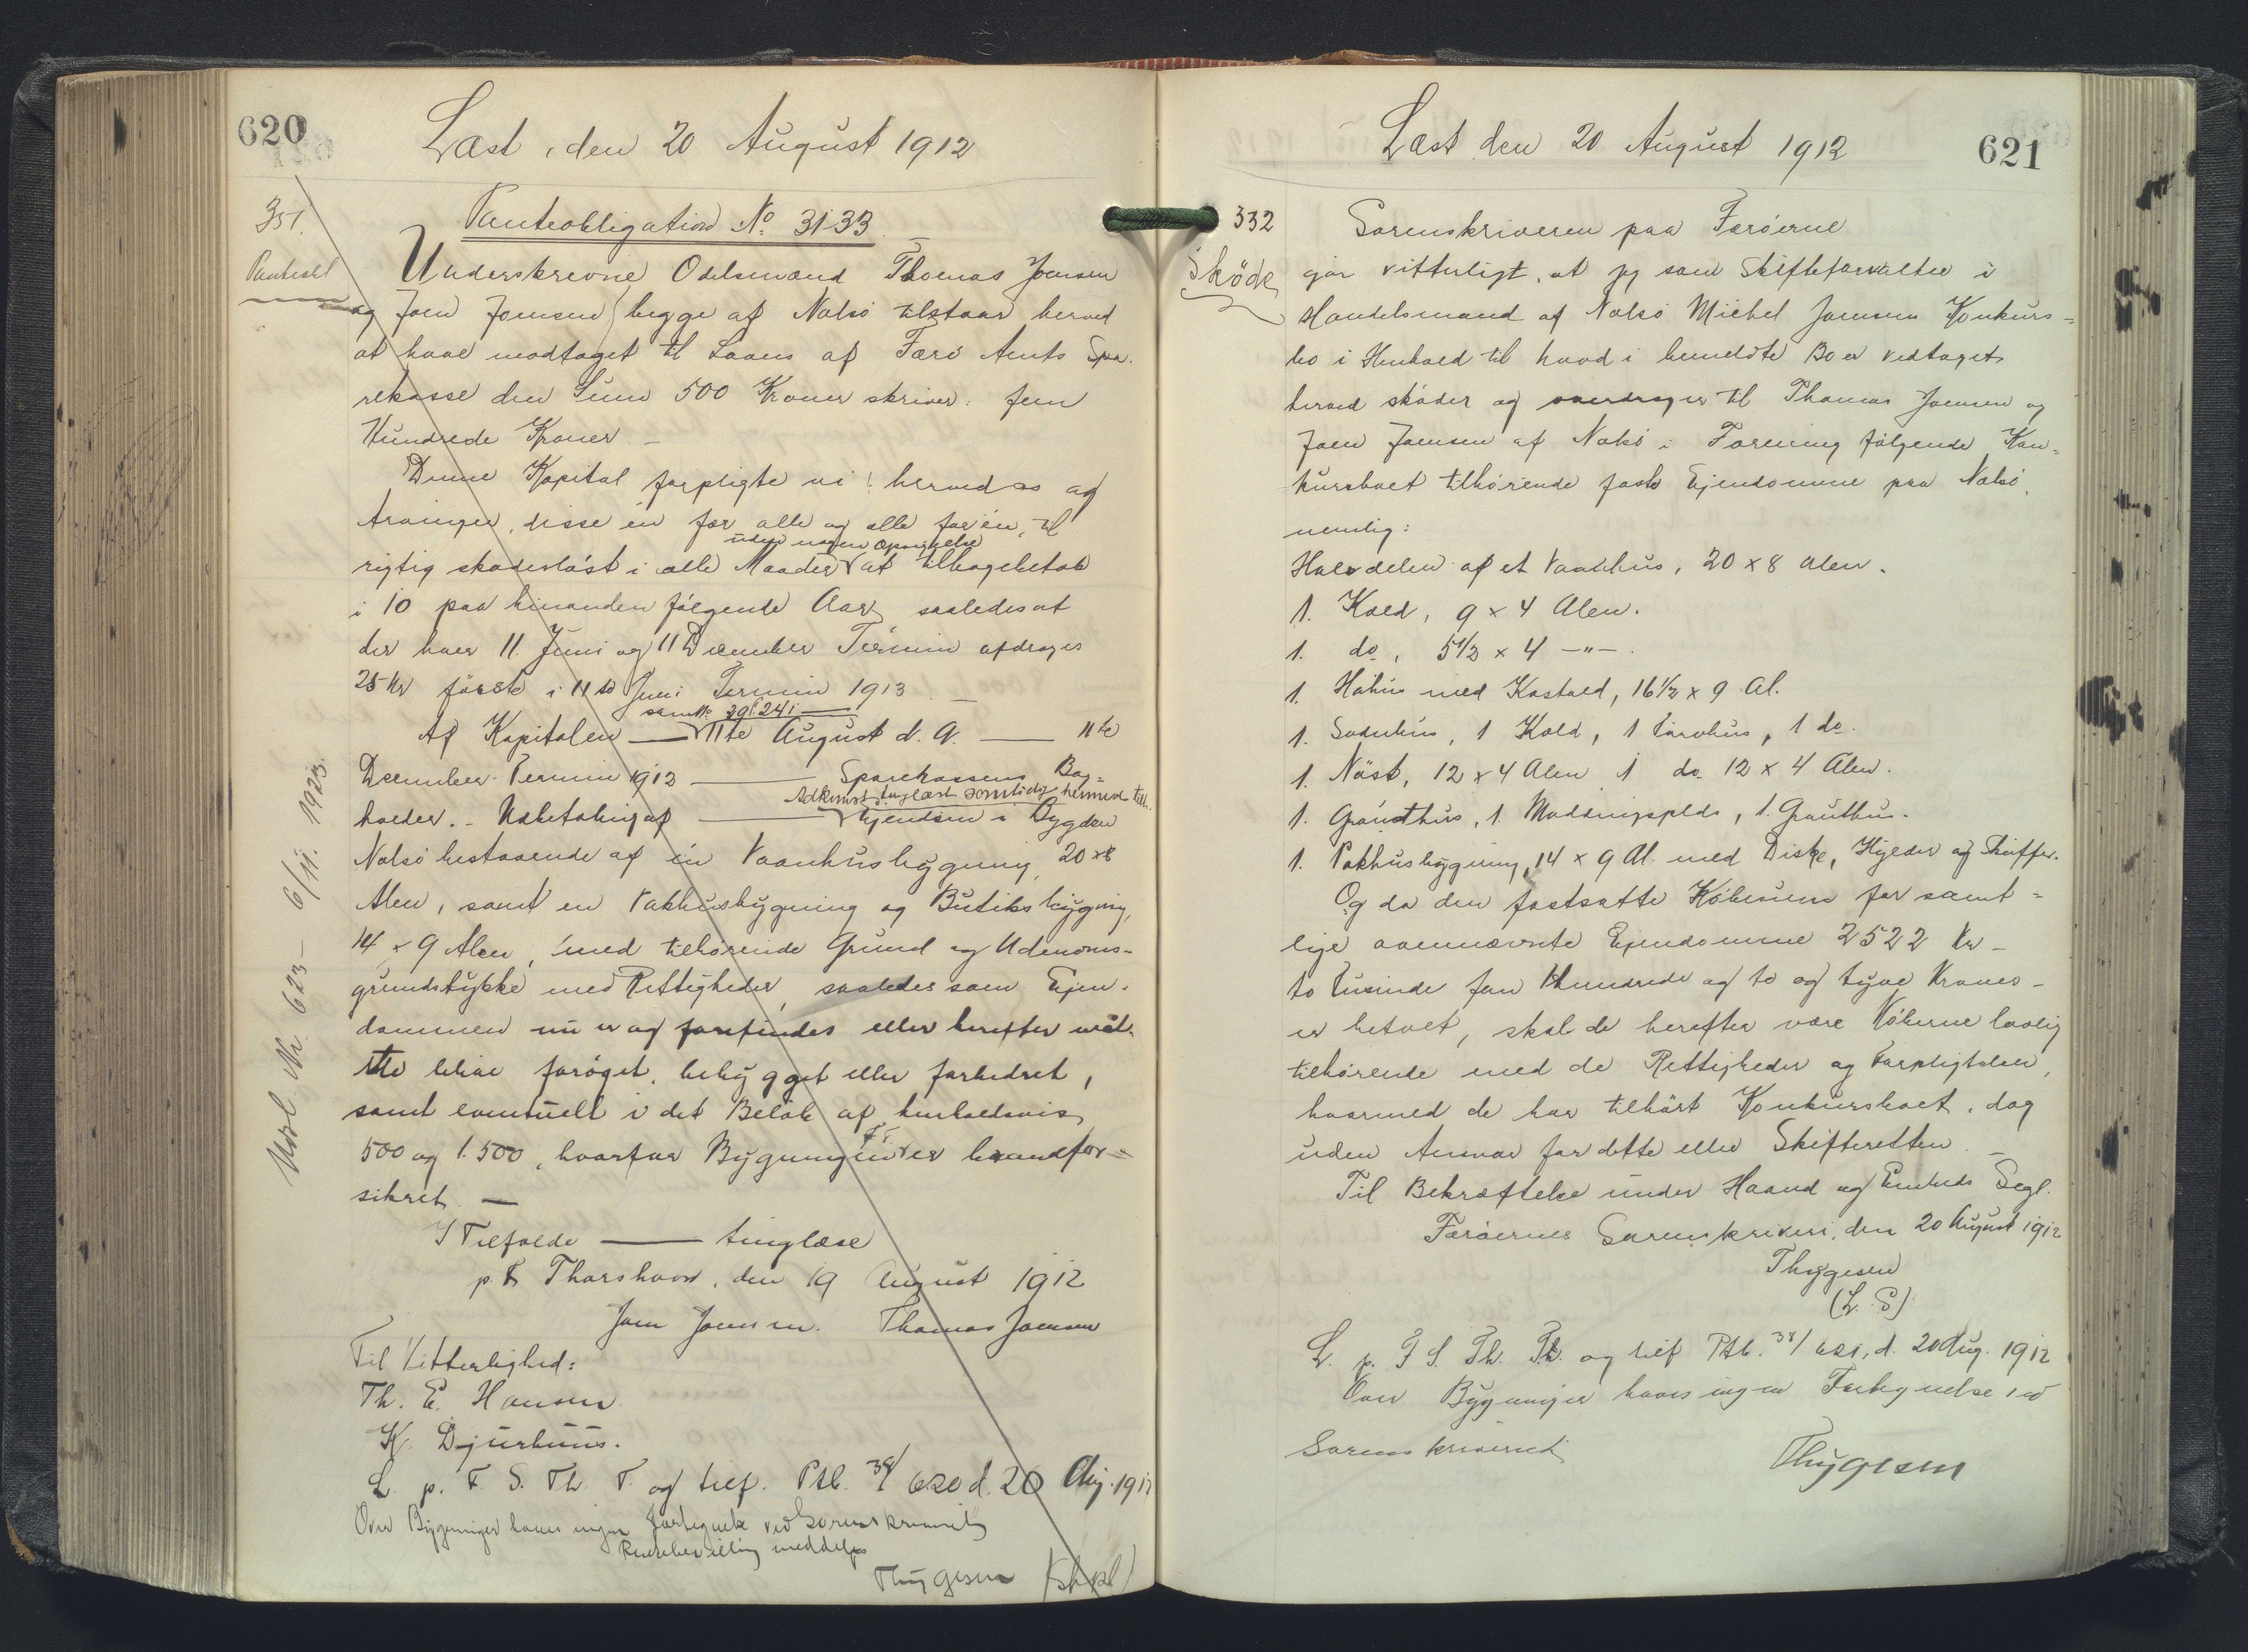 620
Læst, den 20 August 1912
351.
Panteobligation No. 3133.
Underskrevne Odelsmænd Thomas Joensen
og Joen Joensen begge af Nolsö tilstaar herved
at have modtaget til Laans af Færö Amts Spa-
rekasse den Sum 500 Kroner skriver: fem
Hundrede Kroner. —
Denne Kapital forpligte vi herved os og
Arvinger, disse én for alle og alle for én, til
uden nogen Opsigelse
rigtig skadeslöst i alle Maader at tilbagebetale
i 10 paa hinanden fölgende Aar, saaledes at
der hver 11. Juni og 11 December Termin afdrages
25 Kr förste i 11te Juni Termin 1913. —
Af Kapitalen — 11te August d. A. — 11te
December Termin 1912 — Sparekassens Bog-
Adkomst tinglæst samtidig hermed
holder. - Udbetaling af — Ejendom i Bygden
Nolsö bestaaende af én Vaanhusbygning, 20 x 8
Alen, samt en Pakhusbygning og Butiksbygning,
14 x 9 Alen, med tilhörende Grund og Udenoms-
grundstykke med Rettigheder, saaledes som Ejen-
dommen nu er og forefindes eller herefter maat-
te blive foröget, bebygget eller forbedret,
samt eventuelt i det Belöb af henholdsvis
500 og 1.500, hvorfor Bygningen er brandfor-
sikret. —
I Tilfælde — tinglæse
p. t. Thorshavn, den 19 August 1912
Joen Joensen. Thomas Joensen
Til Vitterlighed:
Th. E. Hansen
K. Djurhuus.
L. p. F. S. Th. T. og tilf. Ptb. 38/620 d. 20 Aug. 1912
Over Bygninger haves ingen Fortegnelse ved Sorenskriveriet
meddeles
Thygesen
Udsl. Nr. 623 - 6/11. 1923.
Læst den 20 August 1912
621
332
Sköde
Sorenskriveren paa Færöerne
gör vitterligt, at jeg som Skifteforvalter i
Handelsmand af Nolsö Michel Joensens Konkurs-
bo i Henhold til hvad i bemeldte Bo er vedtaget
herved sköder og overdrager til Thomas Joensen og
Joen Joensen af Nolsö i Forening fölgende Kon-
kursboet tilhörende faste Ejendomme paa Nolsö,
nemlig:
Halvdelen af et Vaanhus, 20 x 8 Alen.
1. Kold, 9 x 4 Alen.
1. do, 5 1/2 x 4 —"—.
1. Höhus med Kostald, 16 1/2 x 9 Al.
1. Sodnhus, 1 Kold, 1 Törvhus, 1 do.
1. Nöst, 12 x 4 Alen, 1 do 12 x 4 Alen.
1. Grouthus, 1. Möddingsplds, 1. Grouthus.
1. Pakhusbygning, 14 x 9 Al. med Diske, Hylder og Skuffer.
Og da den fastsatte Köbesum for samt-
lige ovennævnte Ejendomme 2522 Kr -
to Tusinde fem Hundrede og to og tyve Kroner -
er betalt, skal de herefter være Köberne lovlig
tilhörende med de Rettigheder og Forpligtelser,
hvormed de har tilhört Konkursboet, dog
uden Ansvar for dette eller Skifteretten. —
Til Bekræftelse under Haand og Embeds Segl.
Færöernes Sorenskriveri, den 20 August 1912
Thygesen
(L. S.)
L. p. F. S. Th. Th. og tilf Ptb. 38/621, d. 20 Aug. 1912
Over Bygninger haves ingen Fortegnelse ved
Sorenskriveriet
Thygesen